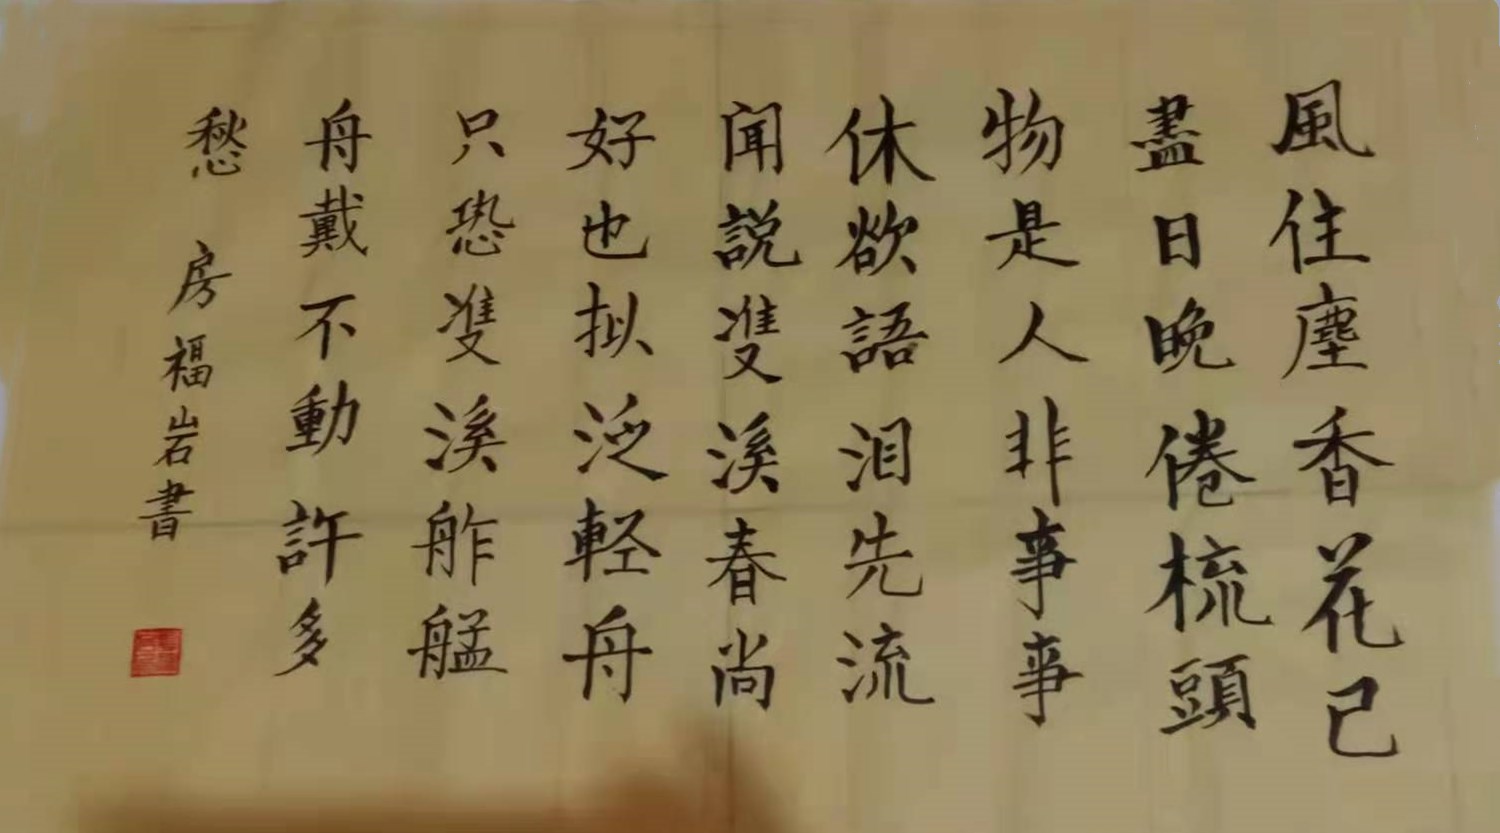 風住塵香花已
盡日晚倦梳頭
物是人非事事
休欲語泪先流
闻説雙溪春尚
好也拟泛輕舟
只恐雙溪舴艋
舟戴不動許多
愁 房福岩書